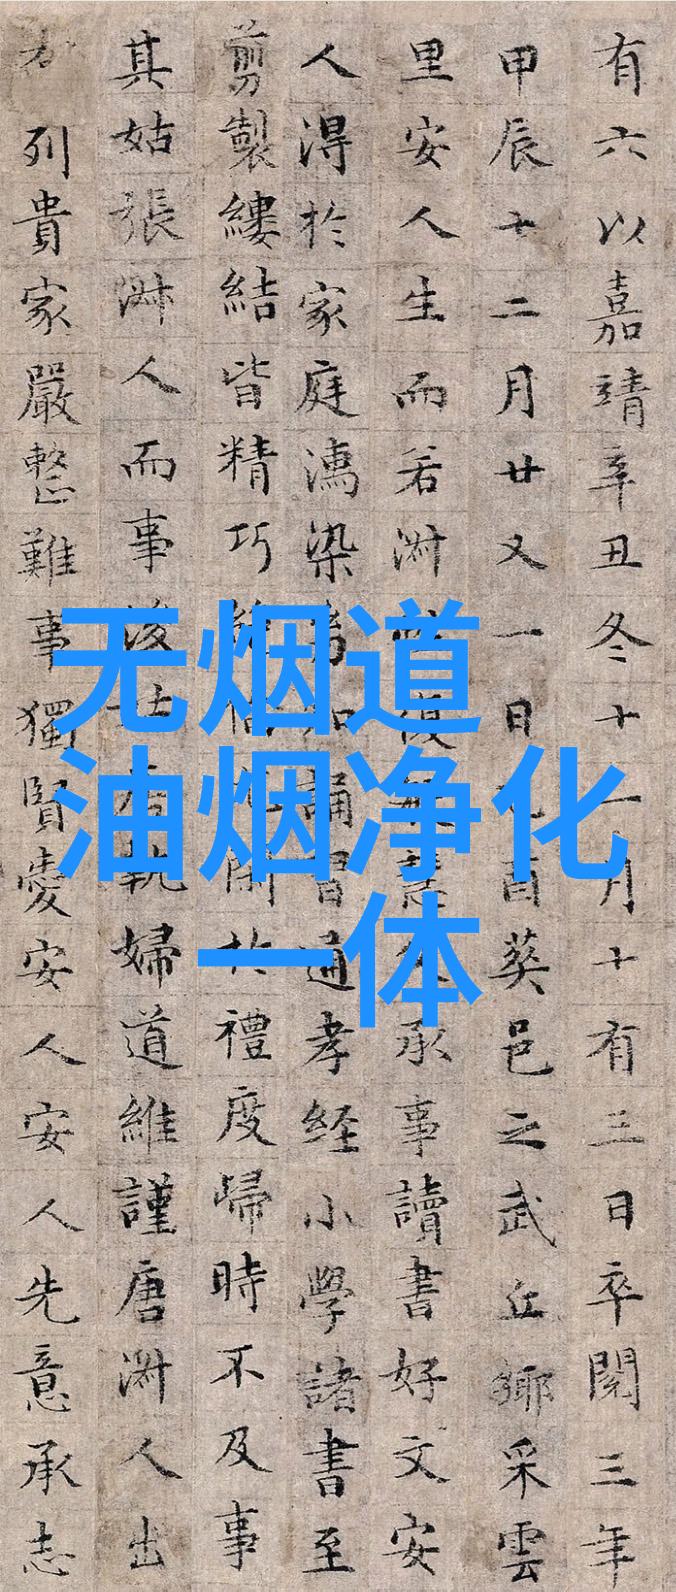 无烟道
油烟净化
一体
有六以嘉靖辛丑冬十一月十有三日卒閱三年
甲辰十二月廿又一日酉葬邑之武丘鄉采雲
里安人生而若淑承事讀書好文安
人淂於家庭濡染知誦習通孝経小學諸書至
剪製縷結皆精巧閑於禮度歸時不及事
其姑張淑人而事後姑唐執婦道維謹唐淑人出
列貴家嚴整難事獨賢愛安人安人先意承志